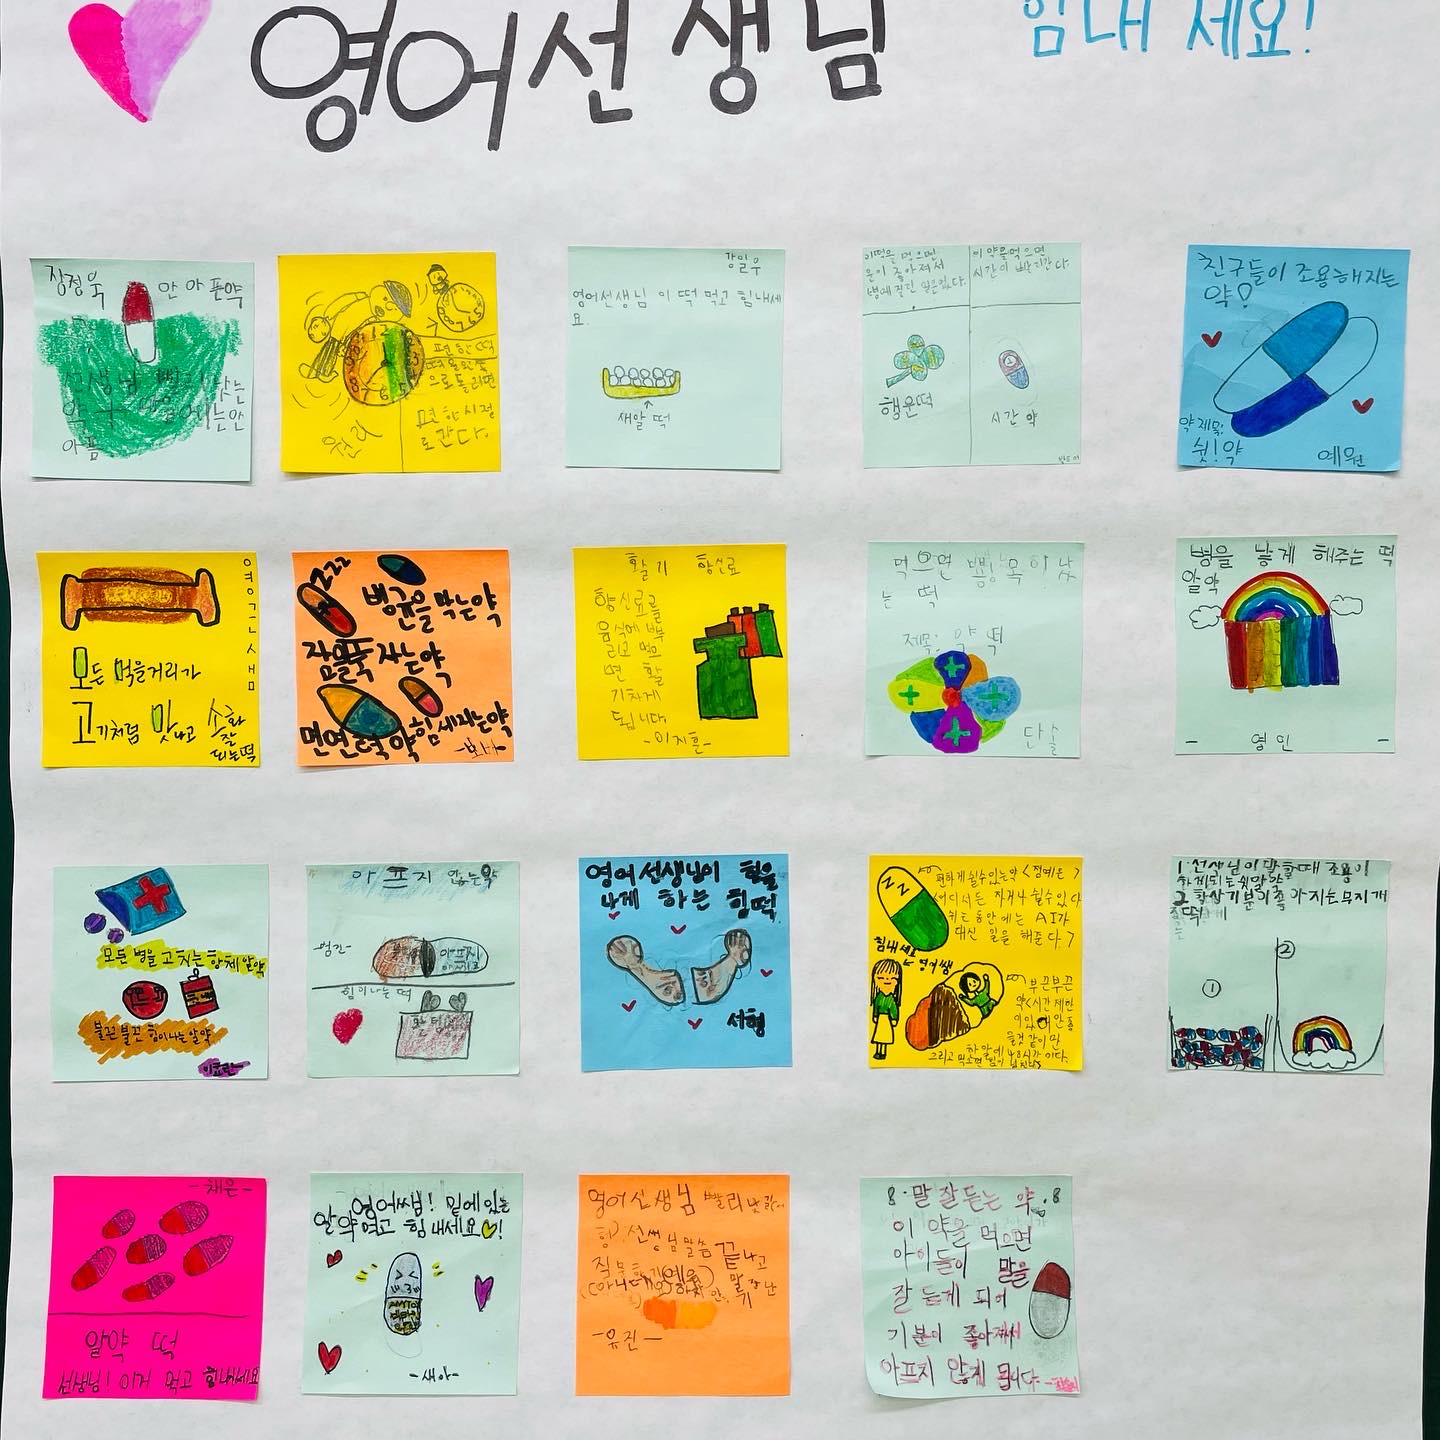 영어선생님
힘내세요!
장정욱
안 아픈약
선생님 빨리 낫는
아픔
편한떡
으로 돌리면
편한시절
로 간다.
원리
강일우
영어선생님 이 떡 먹고 힘내세
요.
새알 떡
이떡을 먹으면
운이 좋아져서
행운떡
이 약을먹으면
시간이 빨리간다.
시간 약
친구들이 조용해지는
약!
약 제목:
쉿!약
예원
영어쌤
모든 먹을거리가
고기처럼 맛나고
소화
잘
되는떡
zzz
병균을 막는약
잠을푹 자는약
면연력약
힘 세지는약
활기 향신료
향신료를
음식에 뿌
리고 먹으
면 활
기차게
됩니다
-이지훈-
먹으면
는 떡
제목: 약 떡
단솔
병을 낳게 해주는 떡
알약
- 영민 -
모든 병을 고치는 항체 알약
불끈불끈 힘이나는 알약
아프지 않는약
힘이나는 떡
영어선생님이 힘을
나게 하는 힘떡.
서형
편하게 쉴수있는약
어디서든 자거나 쉴수있다
쉬는 동안에는 AI가
대신 일을 해준다
힘내세요
영어쌤
부끈부끈
약<시간제한
이있어 안 좋
을것 같이만
하 알에 48시간이다.
1. 선생님이 말할때 조용이
하게되는 쉿알약
2. 항상 기분이 좋아지는 무지개
①
②
-채은-
알약 떡
선생님! 이거 먹고 힘내세요
영어쌤! 밑에있는
알약먹고 힘내세요♡!
-새아-
영어선생님 빨리
선생님말씀 끝나고
질문하기(예외)
-유진-
8·말 잘 듣는 약·8
이 약을 먹으면
아이들이 말을
잘 듣게 되어
기분이 좋아져서
아프지 않게 됩니다.